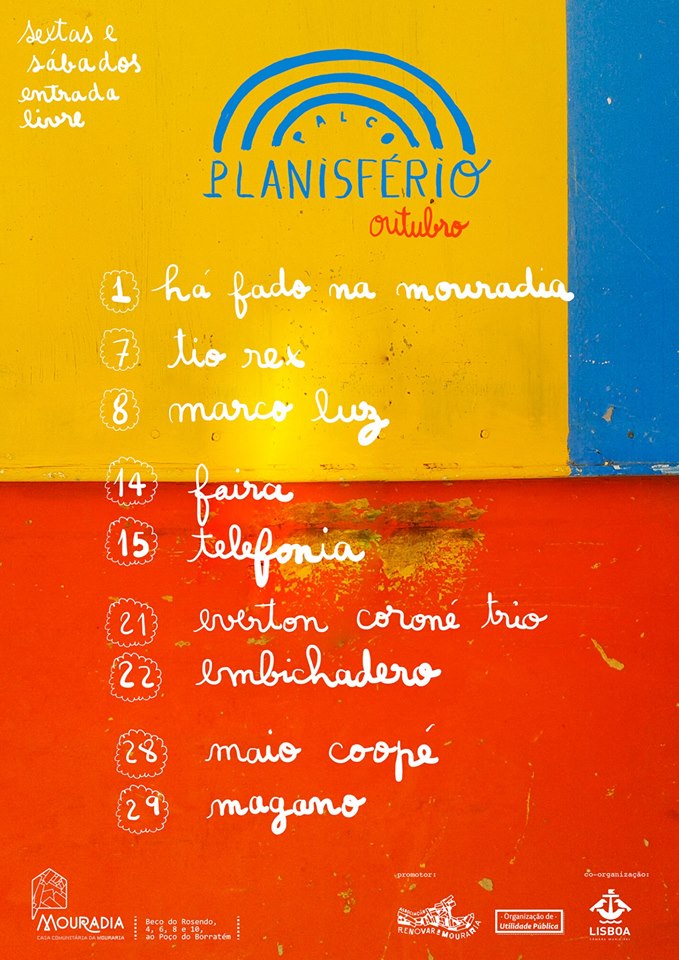 sextas e
sábados
entrada
livre
PALCO
PLANISFÉRIO
outubro
1 há fado na mouradia
7 tio rex
8 marco luz
14 faira
15 telefonia
21 everton coroné trio
22 embichadero
28 maio coopé
29 magano
MOURADIA
CASA COMUNITÁRIA DA MOURARIA
Beco do Rosendo,
4, 6, 8 e 10,
ao Poço do Borratém
promotor:
ASSOCIAÇÃO
RENOVAR A MOURARIA
- Organização de -
Utilidade Pública
co-organização:
LISBOA
CÂMARA MUNICIPAL